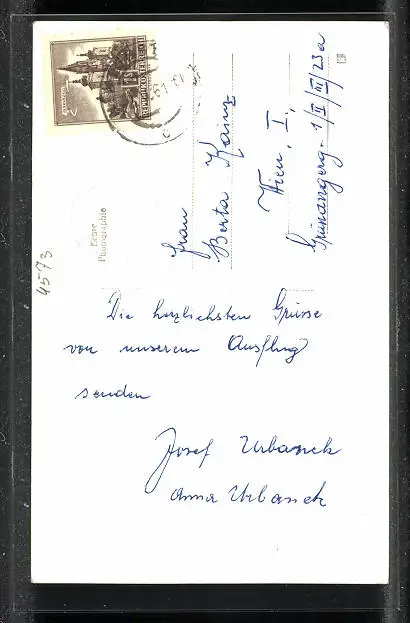 Die herzlichsten Grüsse
von unserem Ausflug
senden
Josef Urbanek
Anna Urbanek
Frau
Berta Kainz
Wien, I.,
Grünangerg. 1/II/III/23a
Echte
Photographie
4573
REPUBLIK ÖSTERREICH